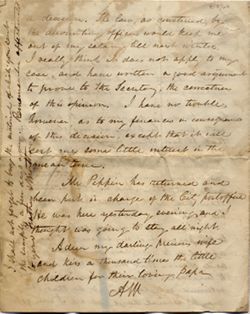 a decision. The law, as construed by
the accounting officers would keep me
out of my salary till next winter.
I really think it does not apply to my
case, and have written a good argument
to prove to the Secretary, the correctness
of this opinion. I have no trouble
however as to my finances in consequence
of this decision, except that it will
cost me some little interest in the
mean time.
Mr Peppin has returned and
been put in charge of the City postoffice.
He was here yesterday evening, and I
thought was going to stay all night.
Adieu my darling precious wife
and kiss a thousand times the little
children for their loving Papa
I shall not forget to buy the